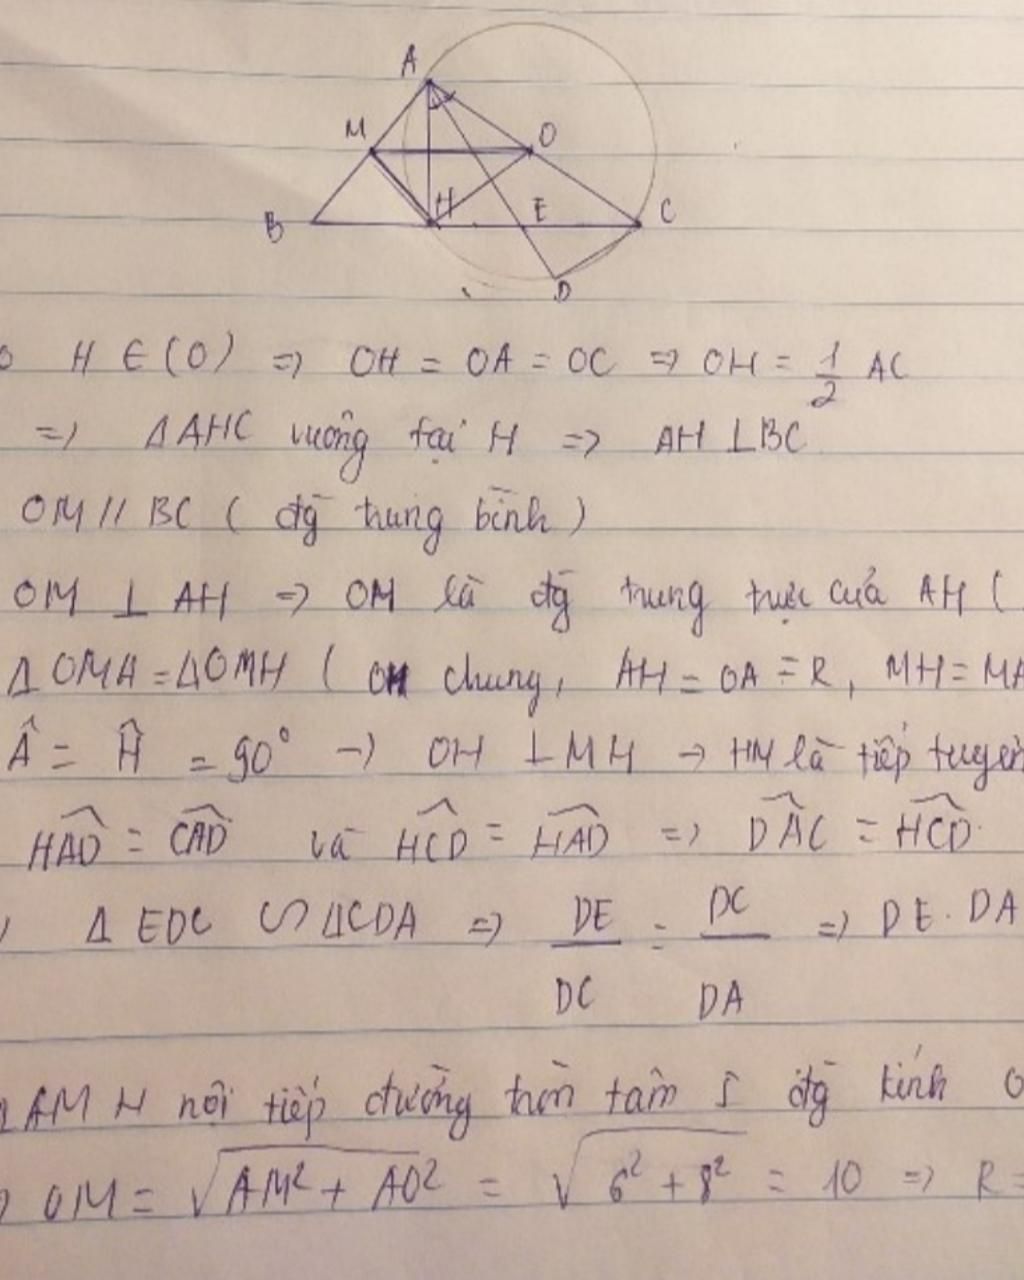 A
M
O
B
H
E
C
D
H ∈ (O) => OH = OA = OC => OH = 1/2 AC
=> ΔAHC vuông tại H => AH ⊥ BC
OM // BC ( đg trung bình )
OM ⊥ AH => OM là đg trung trực của AH (
ΔOMA = ΔOMH ( OM chung, AH = OA = R, MH = MA
Â = Ĥ = 90° -> OH ⊥ MH -> HM là tiếp tuyến
\widehat{HAD} = \widehat{CAD} và \widehat{HCD} = \widehat{HAD} => \widehat{DAC} = \widehat{HCD}
Δ EDC ∽ ΔCDA => DE/DC = DC/DA => DE . DA
AMH nội tiếp đường tròn tâm I đg kính O
OM = √(AM² + AO²) = √(6² + 8²) = 10 => R =